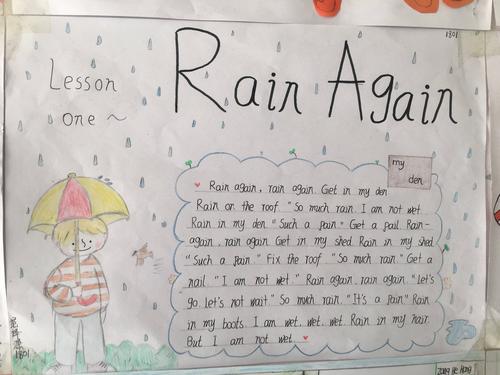 1801
Rain Again
Lesson
one ~
my
den
Rain again, rain again. Get in my den
Rain on the roof "So much rain. I am not wet.
Rain in my den "Such a pain" Get a pail. Rain-
again, rain again. Get in my shed. Rain in my shed.
"Such a pain." Fix the roof "So much rain." Get a
nail. "I am not wet" Rain again, rain again. "Let's
go. Let's not wait" So much rain. "It's a pain" Rain
in my boots. I am wet, wet, wet. Rain in my hair.
But I am not wet.
1801